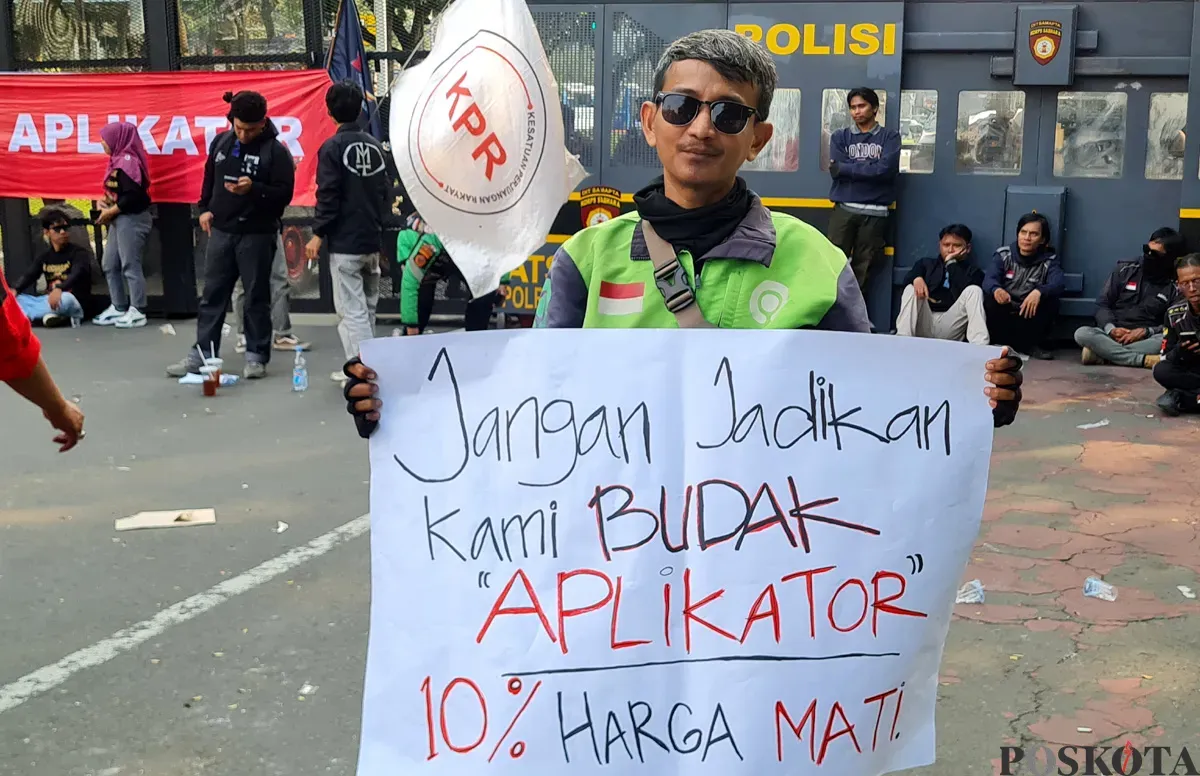 POLISI
DIT SAMAPTA
KORPS SABHARA
APLIKATOR
KPR
KESATUAN PERJUANGAN RAKYAT
LONDON
Jangan Jadikan
Kami BUDAK
"APLIKATOR"
10% HARGA MATI.
POSKOTA